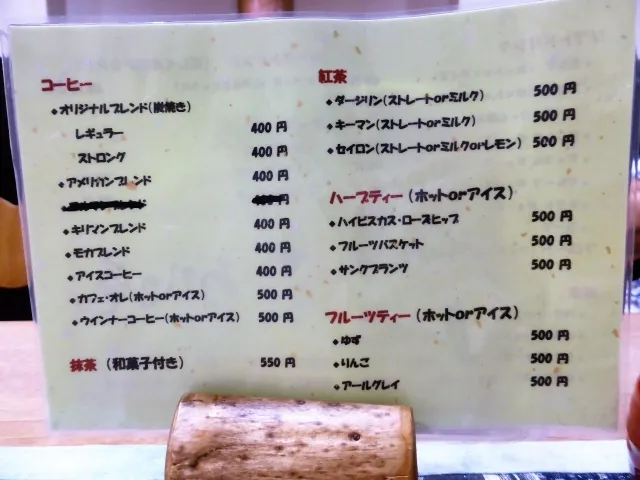 コーヒー
◆オリジナルブレンド(炭焼き)
レギュラー 400 円
ストロング 400 円
◆アメリカンブレンド 400 円
◆キリマンブレンド 400 円
◆モカブレンド 400 円
◆アイスコーヒー 400 円
◆カフェ・オレ(ホットorアイス) 500 円
◆ウインナーコーヒー(ホットorアイス) 500 円
抹茶 (和菓子付き) 550 円
紅茶
◆ダージリン(ストレートorミルク) 500 円
◆キーマン(ストレートorミルク) 500 円
◆セイロン(ストレートorミルクorレモン) 500 円
ハーブティー (ホットorアイス)
◆ハイビスカス・ローズヒップ 500 円
◆フルーツバスケット 500 円
◆サンタプランツ 500 円
フルーツティー (ホットorアイス)
◆ゆず 500 円
◆りんご 500 円
◆アールグレイ 500 円